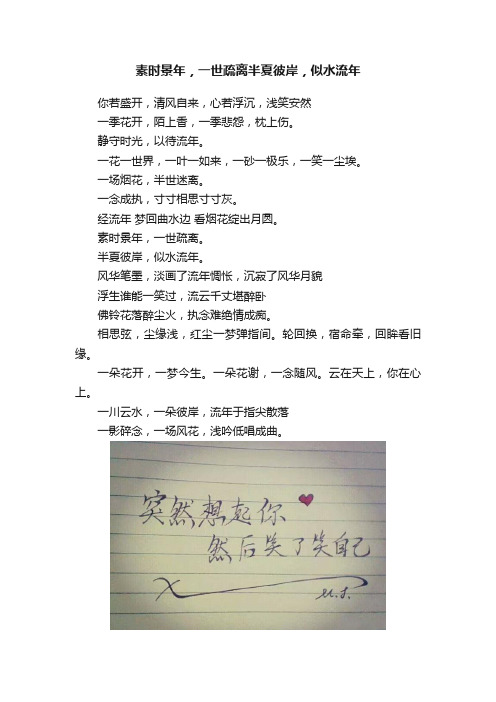 素时景年，一世疏离半夏彼岸，似水流年
你若盛开，清风自来，心若浮沉，浅笑安然
一季花开，陌上香，一季悲怨，枕上伤。
静守时光，以待流年。
一花一世界，一叶一如来，一砂一极乐，一笑一尘埃。
一场烟花，半世迷离。
一念成执，寸寸相思寸寸灰。
经流年 梦回曲水边 看烟花绽出月圆。
素时景年，一世疏离。
半夏彼岸，似水流年。
风华笔墨，淡画了流年惆怅，沉寂了风华月貌
浮生谁能一笑过，流云千丈堪醉卧
佛铃花落醉尘火，执念难绝情成痴。
相思弦，尘缘浅，红尘一梦弹指间。轮回换，宿命牵，回眸看旧
缘。
一朵花开，一梦今生。一朵花谢，一念随风。云在天上，你在心
上。
一川云水，一朵彼岸，流年于指尖散落
一影碎念，一场风花，浅吟低唱成曲。
突然想起你
然后笑了笑自己